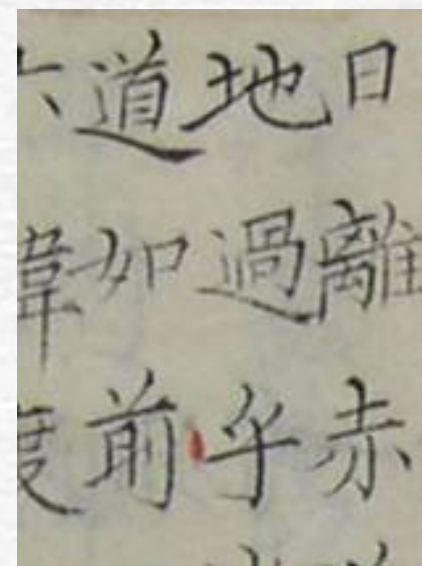 日離赤
地過乎
道如前
六